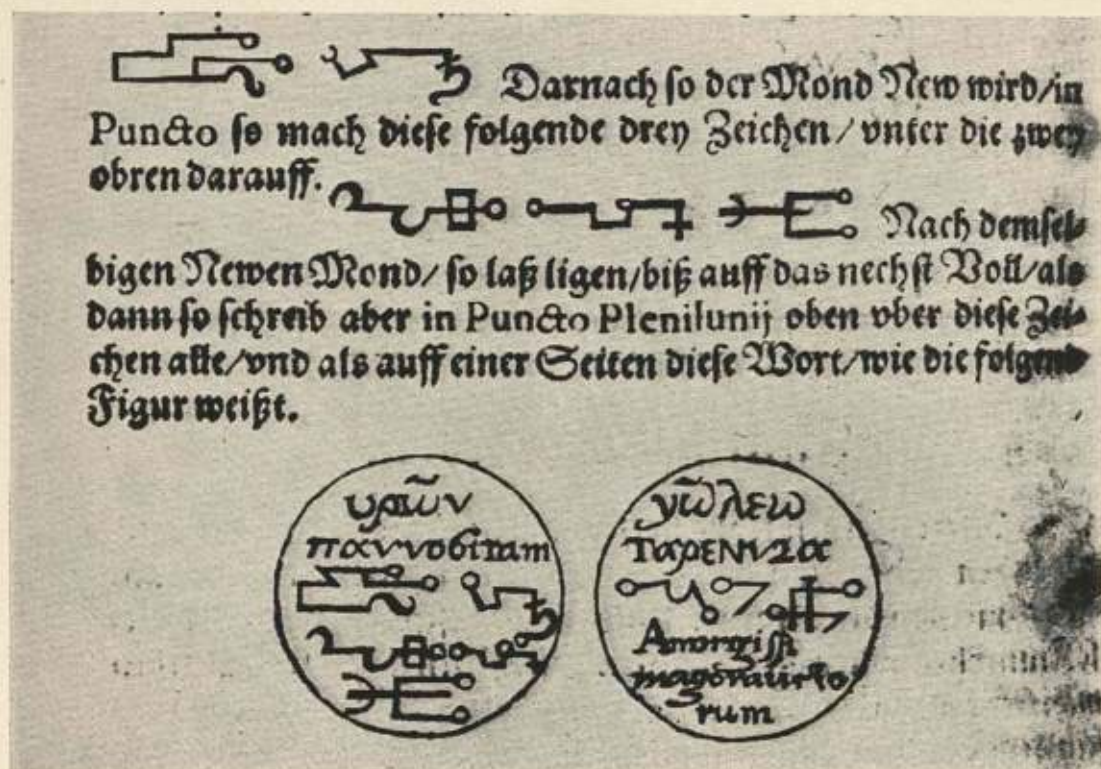 Darnach so der Mond New wird/in
Puncto so mach diese folgende drey Zeichen/vnter die zwey
obren darauff.
Nach demsel-
bigen Newen Mond/so laß ligen/biß auff das nechst Voll/als
dann so schreib aber in Puncto Plenilunij oben vber diese Zei-
chen alle/vnd als auff einer Seiten diese Wort/wie die folgend
Figur weißt.
υρῶν
πανν
γῶλεω
rum